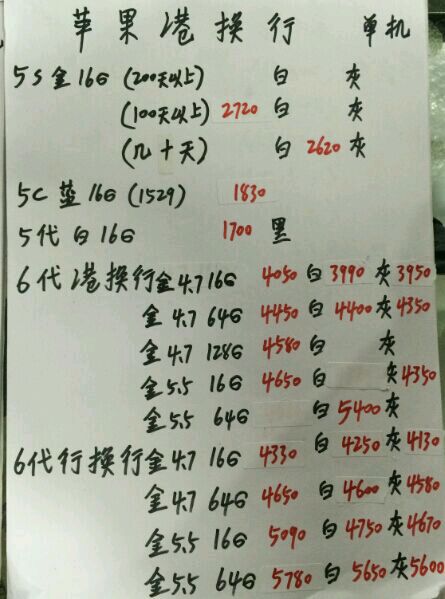 苹果港换行 单机
5S金16G(200天以上) 白 灰
(100天以上) 2720 白 灰
(几十天) 白 2620 灰
5C蓝16G(1529) 1830
5代白16G 1700 黑
6代港换行金4.7 16G 4050 白 3990 灰 3950
金4.7 64G 4450 白 4400 灰 4350
金4.7 128G 4580 白 灰
金5.5 16G 4650 白 灰 4350
金5.5 64G 白 5400 灰
6代行换行金4.7 16G 4330 白 4250 灰 4130
金4.7 64G 4650 白 4600 灰 4580
金5.5 16G 5090 白 4750 灰 4670
金5.5 64G 5780 白 5650 灰 5600